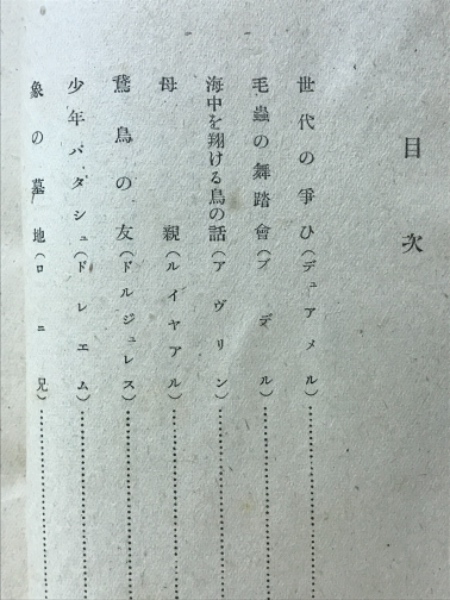 目次
世代の爭ひ(デュアメル)
毛蟲の舞踏會(ブデル)
海中を翔ける鳥の話(アヴリン)
母親(ルイヤアル)
鵞鳥の友(ドルジュレス)
少年バダシュ(ドレエム)
象の墓地(ロニ兄)